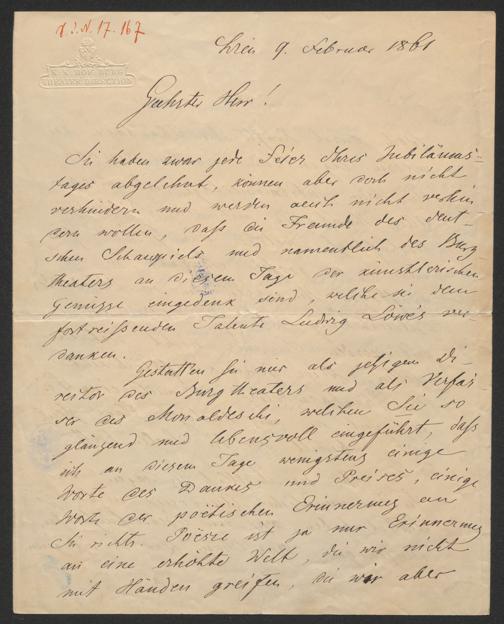 J. N. 17.167
K. K. HOF-BURG
THEATER-DIRECTION
Wien 9. Februar 1861
Geehrter Herr!
Sie haben zwar jede Feier Ihres Jubiläums-
tages abgelehnt, können aber doch nicht
verhindern und werden auch nicht verhin
dern wollen, daß die Freunde des deut-
schen Schauspiels und namentlich des Burg
theaters an diesem Tage der künstlerischen
Genüsse eingedenk sind, welche sie dem
fortreißenden Talente Ludwig Löwe's ver
danken.
Gestatten Sie mir als jetzigem Di-
rector des Burgtheaters und als Verfas
ser des Monaldeschi, welchen Sie so
glänzend und lebensvoll eingeführt, daß
ich an diesem Tage wenigstens einige
Worte des Dankes und Preises, einige
Worte der poëtischen Erinnerung an
Sie richte. Poësie ist ja nur Erinnerung
an eine erhöhte Welt, die wir nicht
mit Händen greifen, die wir aber